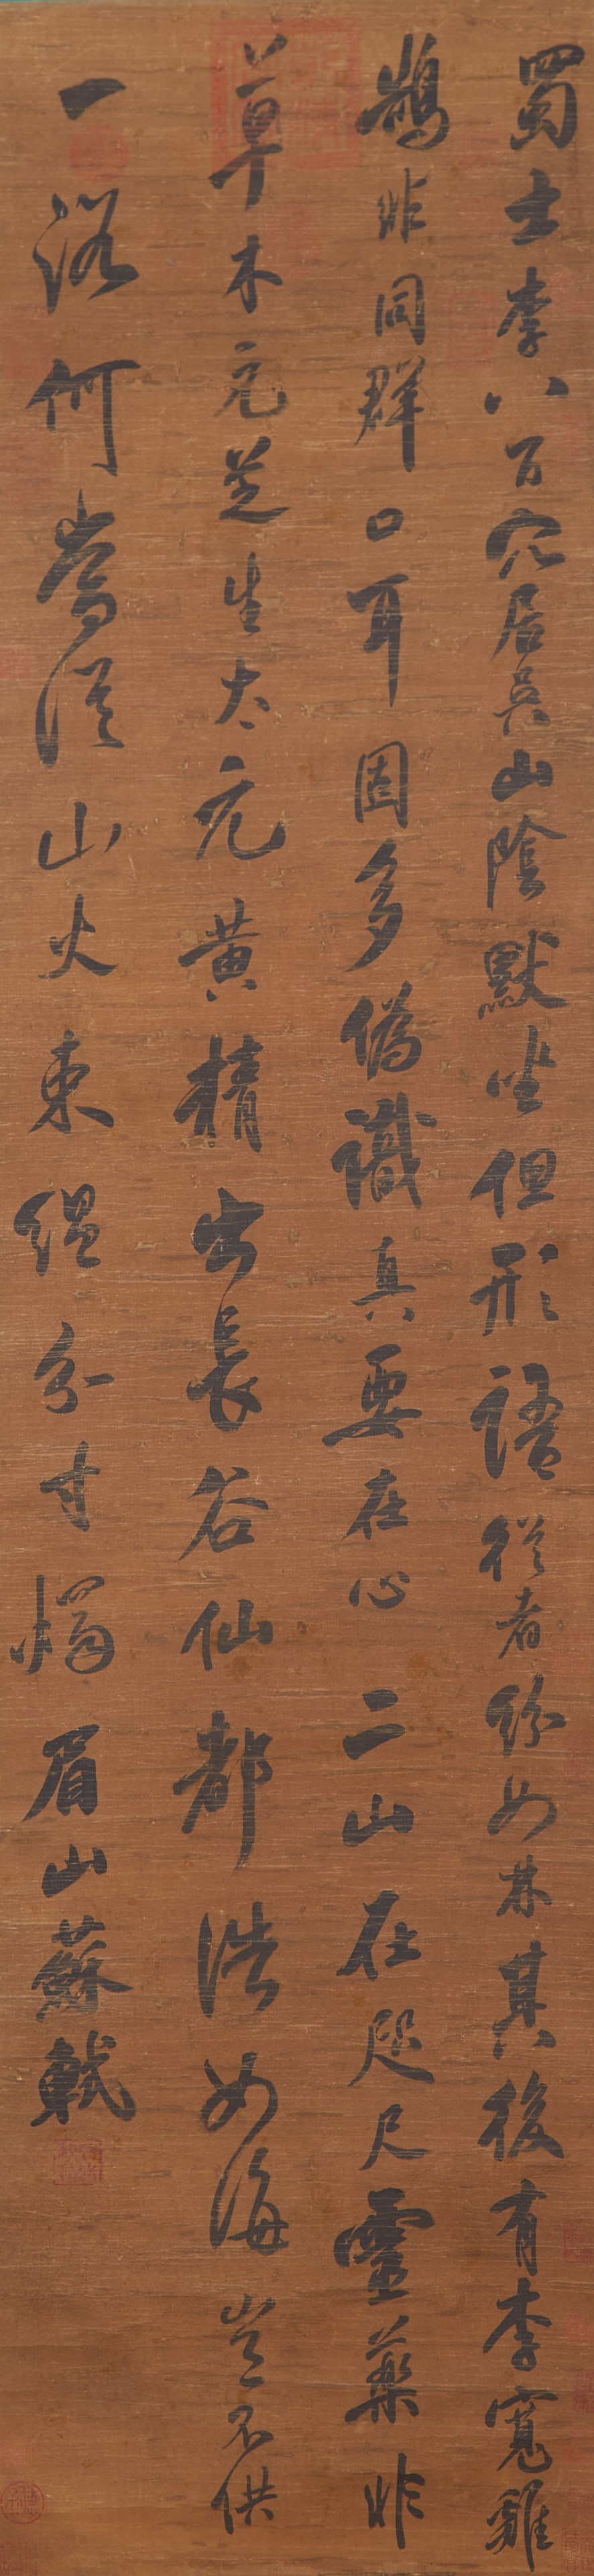 蜀士李八百穴居吳山陰默坐但形語從者紛如林其後有李寬雞
鵠非同群口耳固多偽識真要在心二山在咫尺靈藥非
草木玄芝生太元黃精出長谷仙都浩如海豈不供
一浴何當從山火束縕分寸燭眉山蘇軾